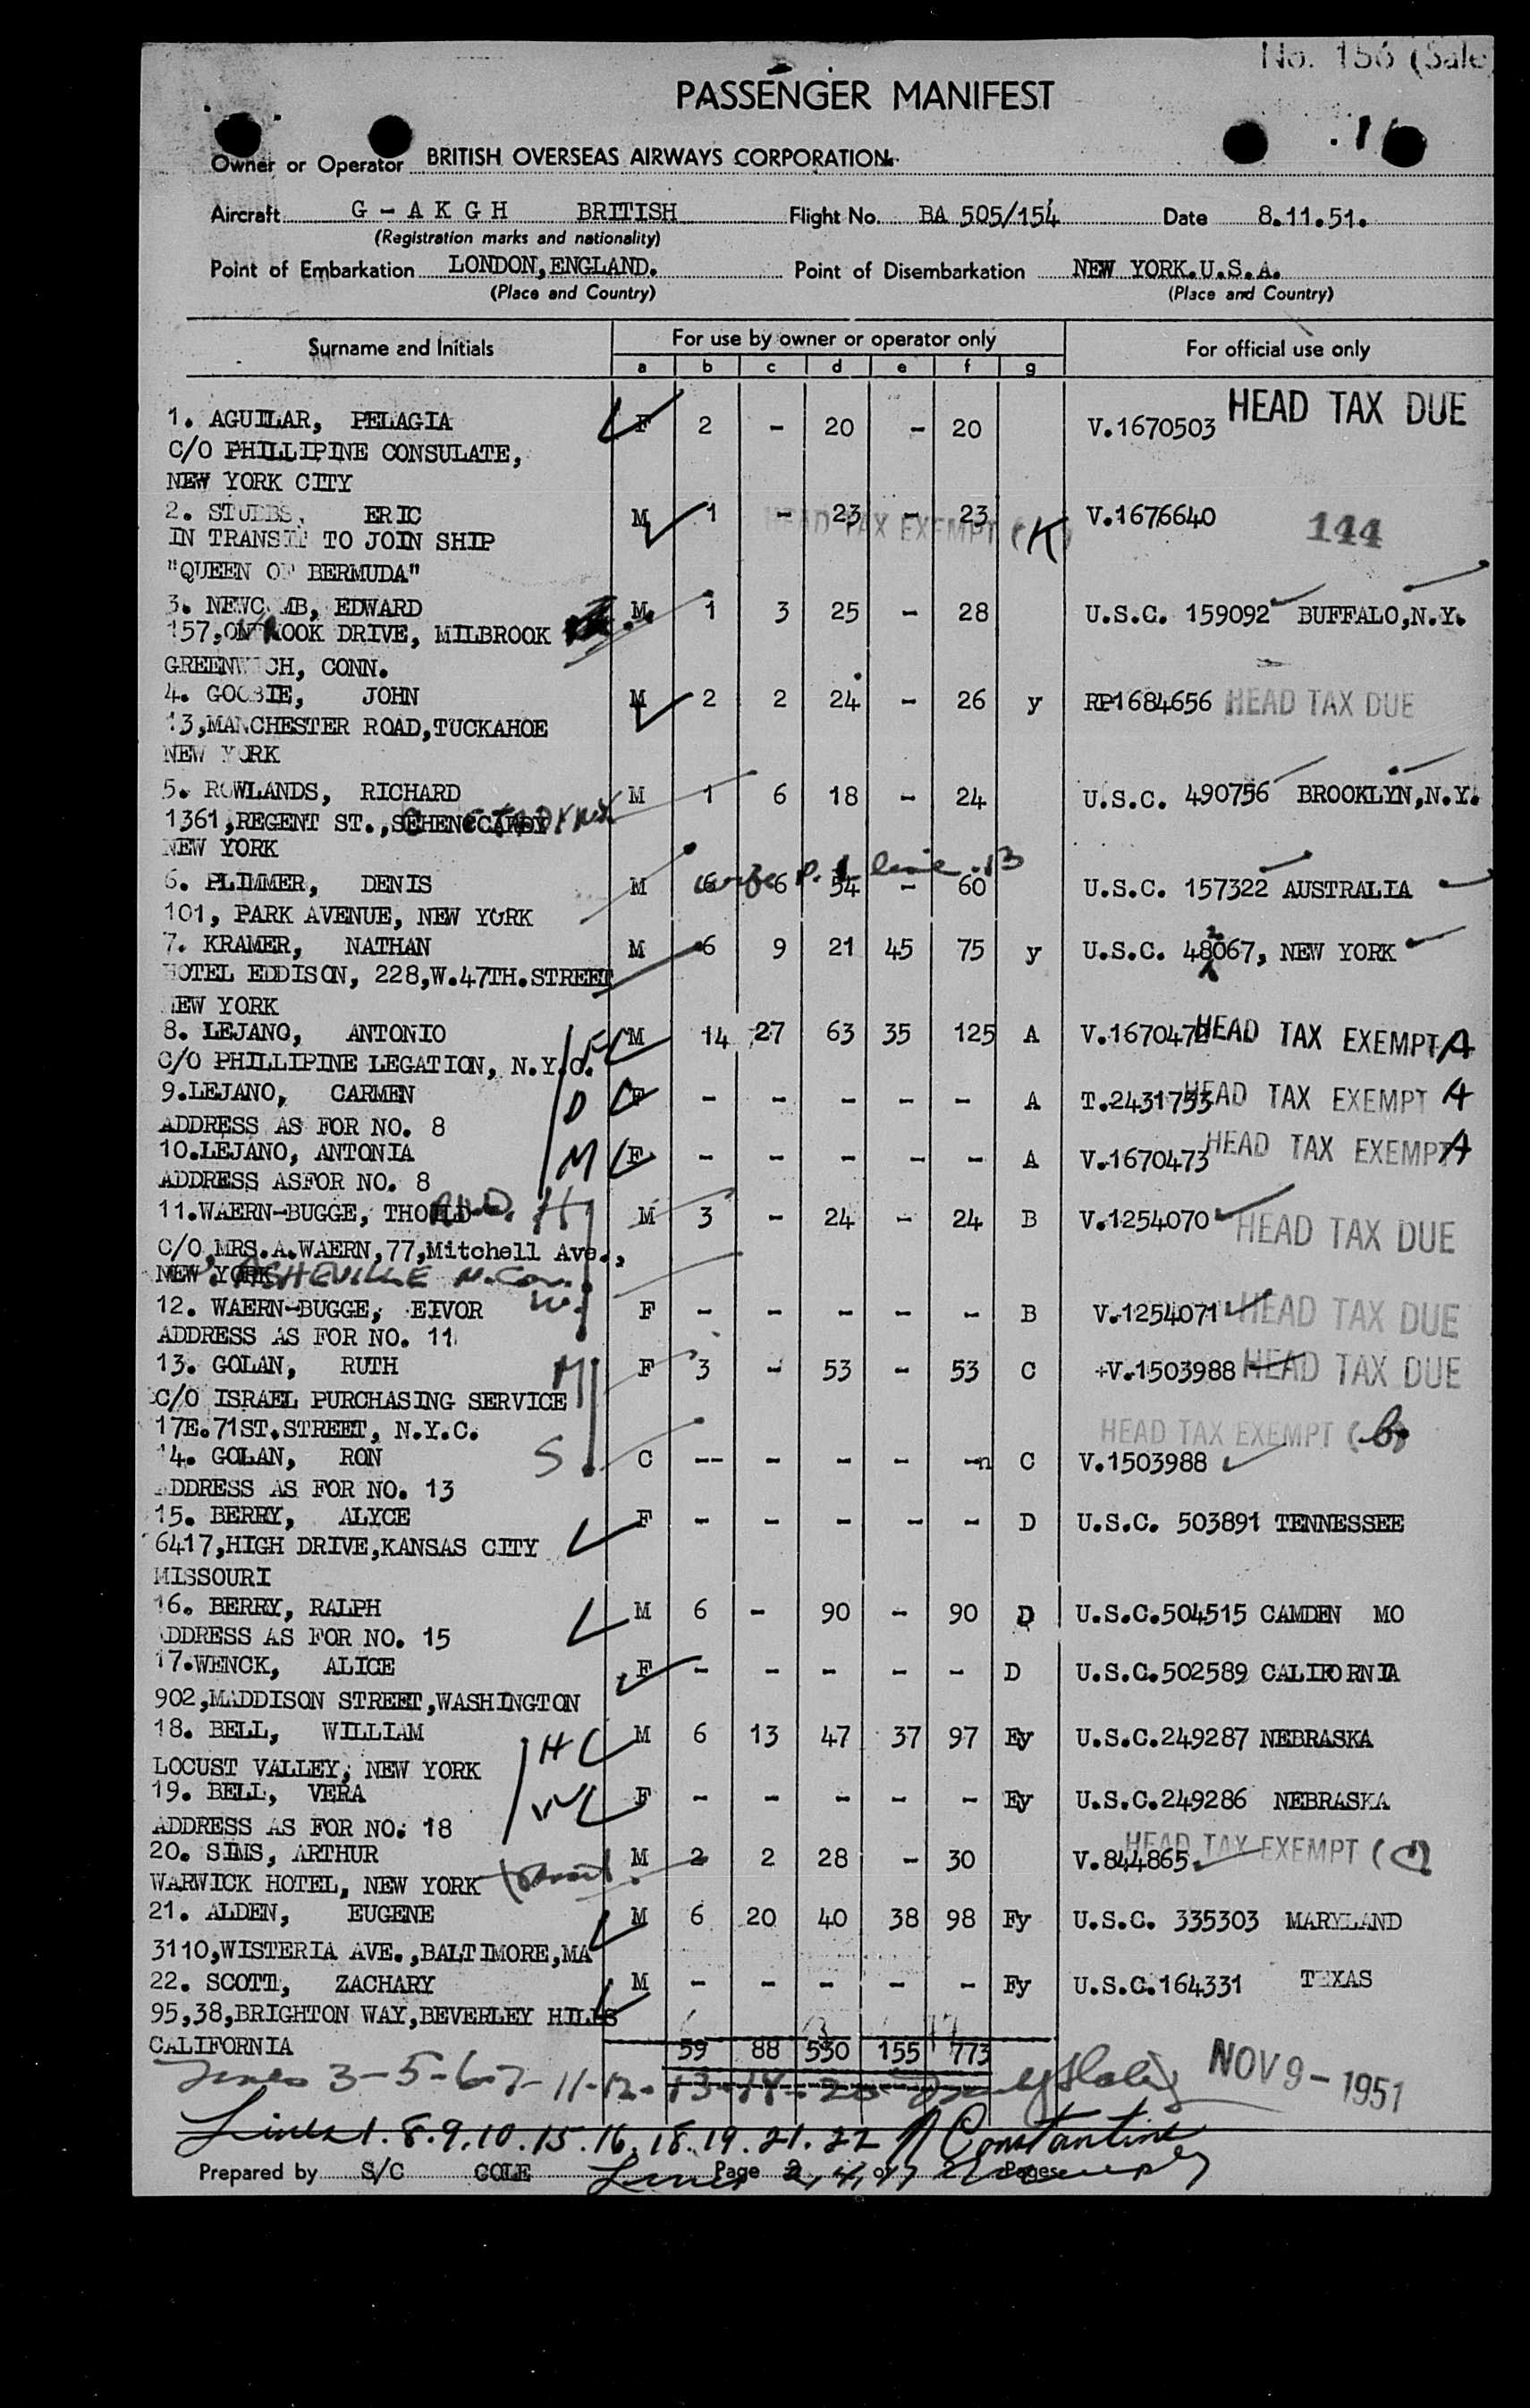 No. 156 (Sale
PASSENGER MANIFEST
Owner or Operator BRITISH OVERSEAS AIRWAYS CORPORATION.
Aircraft G - A K G H BRITISH Flight No. BA 505/154 Date 8.11.51.
(Registration marks and nationality)
Point of Embarkation LONDON, ENGLAND. Point of Disembarkation NEW YORK.U.S.A.
(Place and Country) (Place and Country)
Surname and Initials For use by owner or operator only For official use only
a b c d e f g
1. AGUILAR, PELAGIA F 2 - 20 - 20 V.1670503 HEAD TAX DUE
C/O PHILLIPINE CONSULATE,
NEW YORK CITY
2. STUBBS, ERIC M 1 - 23 - 23 V.1676640 144
HEAD TAX EXEMPT (K)
IN TRANSIT TO JOIN SHIP
"QUEEN OF BERMUDA"
3. NEWCOMB, EDWARD M. 1 3 25 - 28 U.S.C. 159092 BUFFALO,N.Y.
157, DRIVE, MILBROOK
GREENWICH, CONN.
4. GOOBIE, JOHN M 2 2 24 - 26 y RP1684656 HEAD TAX DUE
13,MANCHESTER ROAD,TUCKAHOE
NEW YORK
5. ROWLANDS, RICHARD M 1 6 18 - 24 U.S.C. 490756 BROOKLYN,N.Y.
1361,REGENT ST.,
NEW YORK
line 13
6. PLIMMER, DENIS M 6 6 54 - 60 U.S.C. 157322 AUSTRALIA
101, PARK AVENUE, NEW YORK
7. KRAMER, NATHAN M 6 9 21 45 75 y U.S.C. 48067, NEW YORK
2
HOTEL EDDISON, 228,W.47TH.STREET
NEW YORK
8. LEJANO, ANTONIO F M 14 27 63 35 125 A V.1670472 HEAD TAX EXEMPT A
C/O PHILLIPINE LEGATION, N.Y.C.
9.LEJANO, CARMEN D F - - - - - A T.2431753 HEAD TAX EXEMPT A
ADDRESS AS FOR NO. 8
10.LEJANO, ANTONIA M F - - - - - A V.1670473 HEAD TAX EXEMPT A
ADDRESS ASFOR NO. 8
11.WAERN-BUGGE, H M 3 - 24 - 24 B V.1254070 HEAD TAX DUE
C/O,MRS.A.WAERN,77,Mitchell Ave.,
NEW YORK ASHEVILLE
12. WAERN-BUGGE, EIVOR W. F - - - - - B V.1254071 HEAD TAX DUE
ADDRESS AS FOR NO. 11
13. GOLAN, RUTH M F 3 - 53 - 53 C V.1503988 HEAD TAX DUE
C/O ISRAEL PURCHASING SERVICE
17E.71ST.STREET, N.Y.C.
HEAD TAX EXEMPT (b)
14. GOLAN, RON S C -- - - - -n C V.1503988
ADDRESS AS FOR NO. 13
15. BERRY, ALYCE F - - - - - D U.S.C. 503891 TENNESSEE
6417,HIGH DRIVE,KANSAS CITY
MISSOURI
16. BERRY, RALPH M 6 - 90 - 90 D U.S.C.504515 CAMDEN MO
ADDRESS AS FOR NO. 15
17.WENCK, ALICE F - - - - - D U.S.C.502589 CALIFORNIA
902,MADDISON STREET,WASHINGTON
18. BELL, WILLIAM H M 6 13 47 37 97 Ey U.S.C.249287 NEBRASKA
LOCUST VALLEY, NEW YORK
19. BELL, VERA W F - - - - - Ey U.S.C.249286 NEBRASKA
ADDRESS AS FOR NO. 18
20. SIMS, ARTHUR M 2 2 28 - 30 V.844865 HEAD TAX EXEMPT
WARWICK HOTEL, NEW YORK transit
21. ALDEN, EUGENE M 6 20 40 38 98 Fy U.S.C. 335303 MARYLAND
3110,WISTERIA AVE.,BALTIMORE,MA
22. SCOTT, ZACHARY M - - - - - Fy U.S.C.164331 TEXAS
95,38,BRIGHTON WAY,BEVERLEY HILLS
CALIFORNIA
59 88 530 155 773
Lines 3-5-6-7-11-12-13-14-20- NOV 9 - 1951
Lines 1.8.9.10.15.16.18.19.21.22 Constantine
Prepared by S/C COLE Page 2 of 2 Pages
Lines 2,4,17